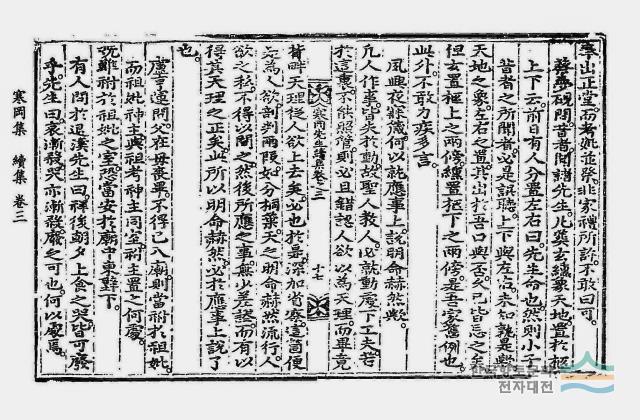 奉出正堂而考妣並祭非家禮所許不敢曰可
上下云前日有人分置左右曰先生命也然則小子
昔者之所聞者必是誤聽上下與左右未知孰是歟
天地之象左右之置其出於吾口與否久已皆忘之矣
但玄置柩上之兩傍纁置柩下之兩傍是吾家舊例也
此外不敢力疾多言
夙興夜寐箴何以就應事上說明命赫然歟
凡人作事皆失於動故聖人教人必就動處下工夫若
於這裏不能照管則必且錯認人欲以為天理而畢竟
寒岡先生續集卷三
十一
背畔天理從人欲上去矣必也於是深加省察這箇便
是為人欲剖判兩段如分桐葉天之明命赫然流行人
欲之私不得以間之然後所應之事無少差謬而有以
得其天理之正矣此所以明命赫然必於應事上說了
也
盧亨遠問父在母喪畢不得已入廟則當祔於祖妣
而祖妣神主與祖考神主同室祔主置之何處
既雖祔於祖妣之室恐當安於廟中東壁下
有人問於退溪先生曰禫後朝夕上食之哭皆可廢
乎先生曰哀漸殺哭亦漸殺廢之可也何以處焉
寒岡集 續集 卷三
전자대전